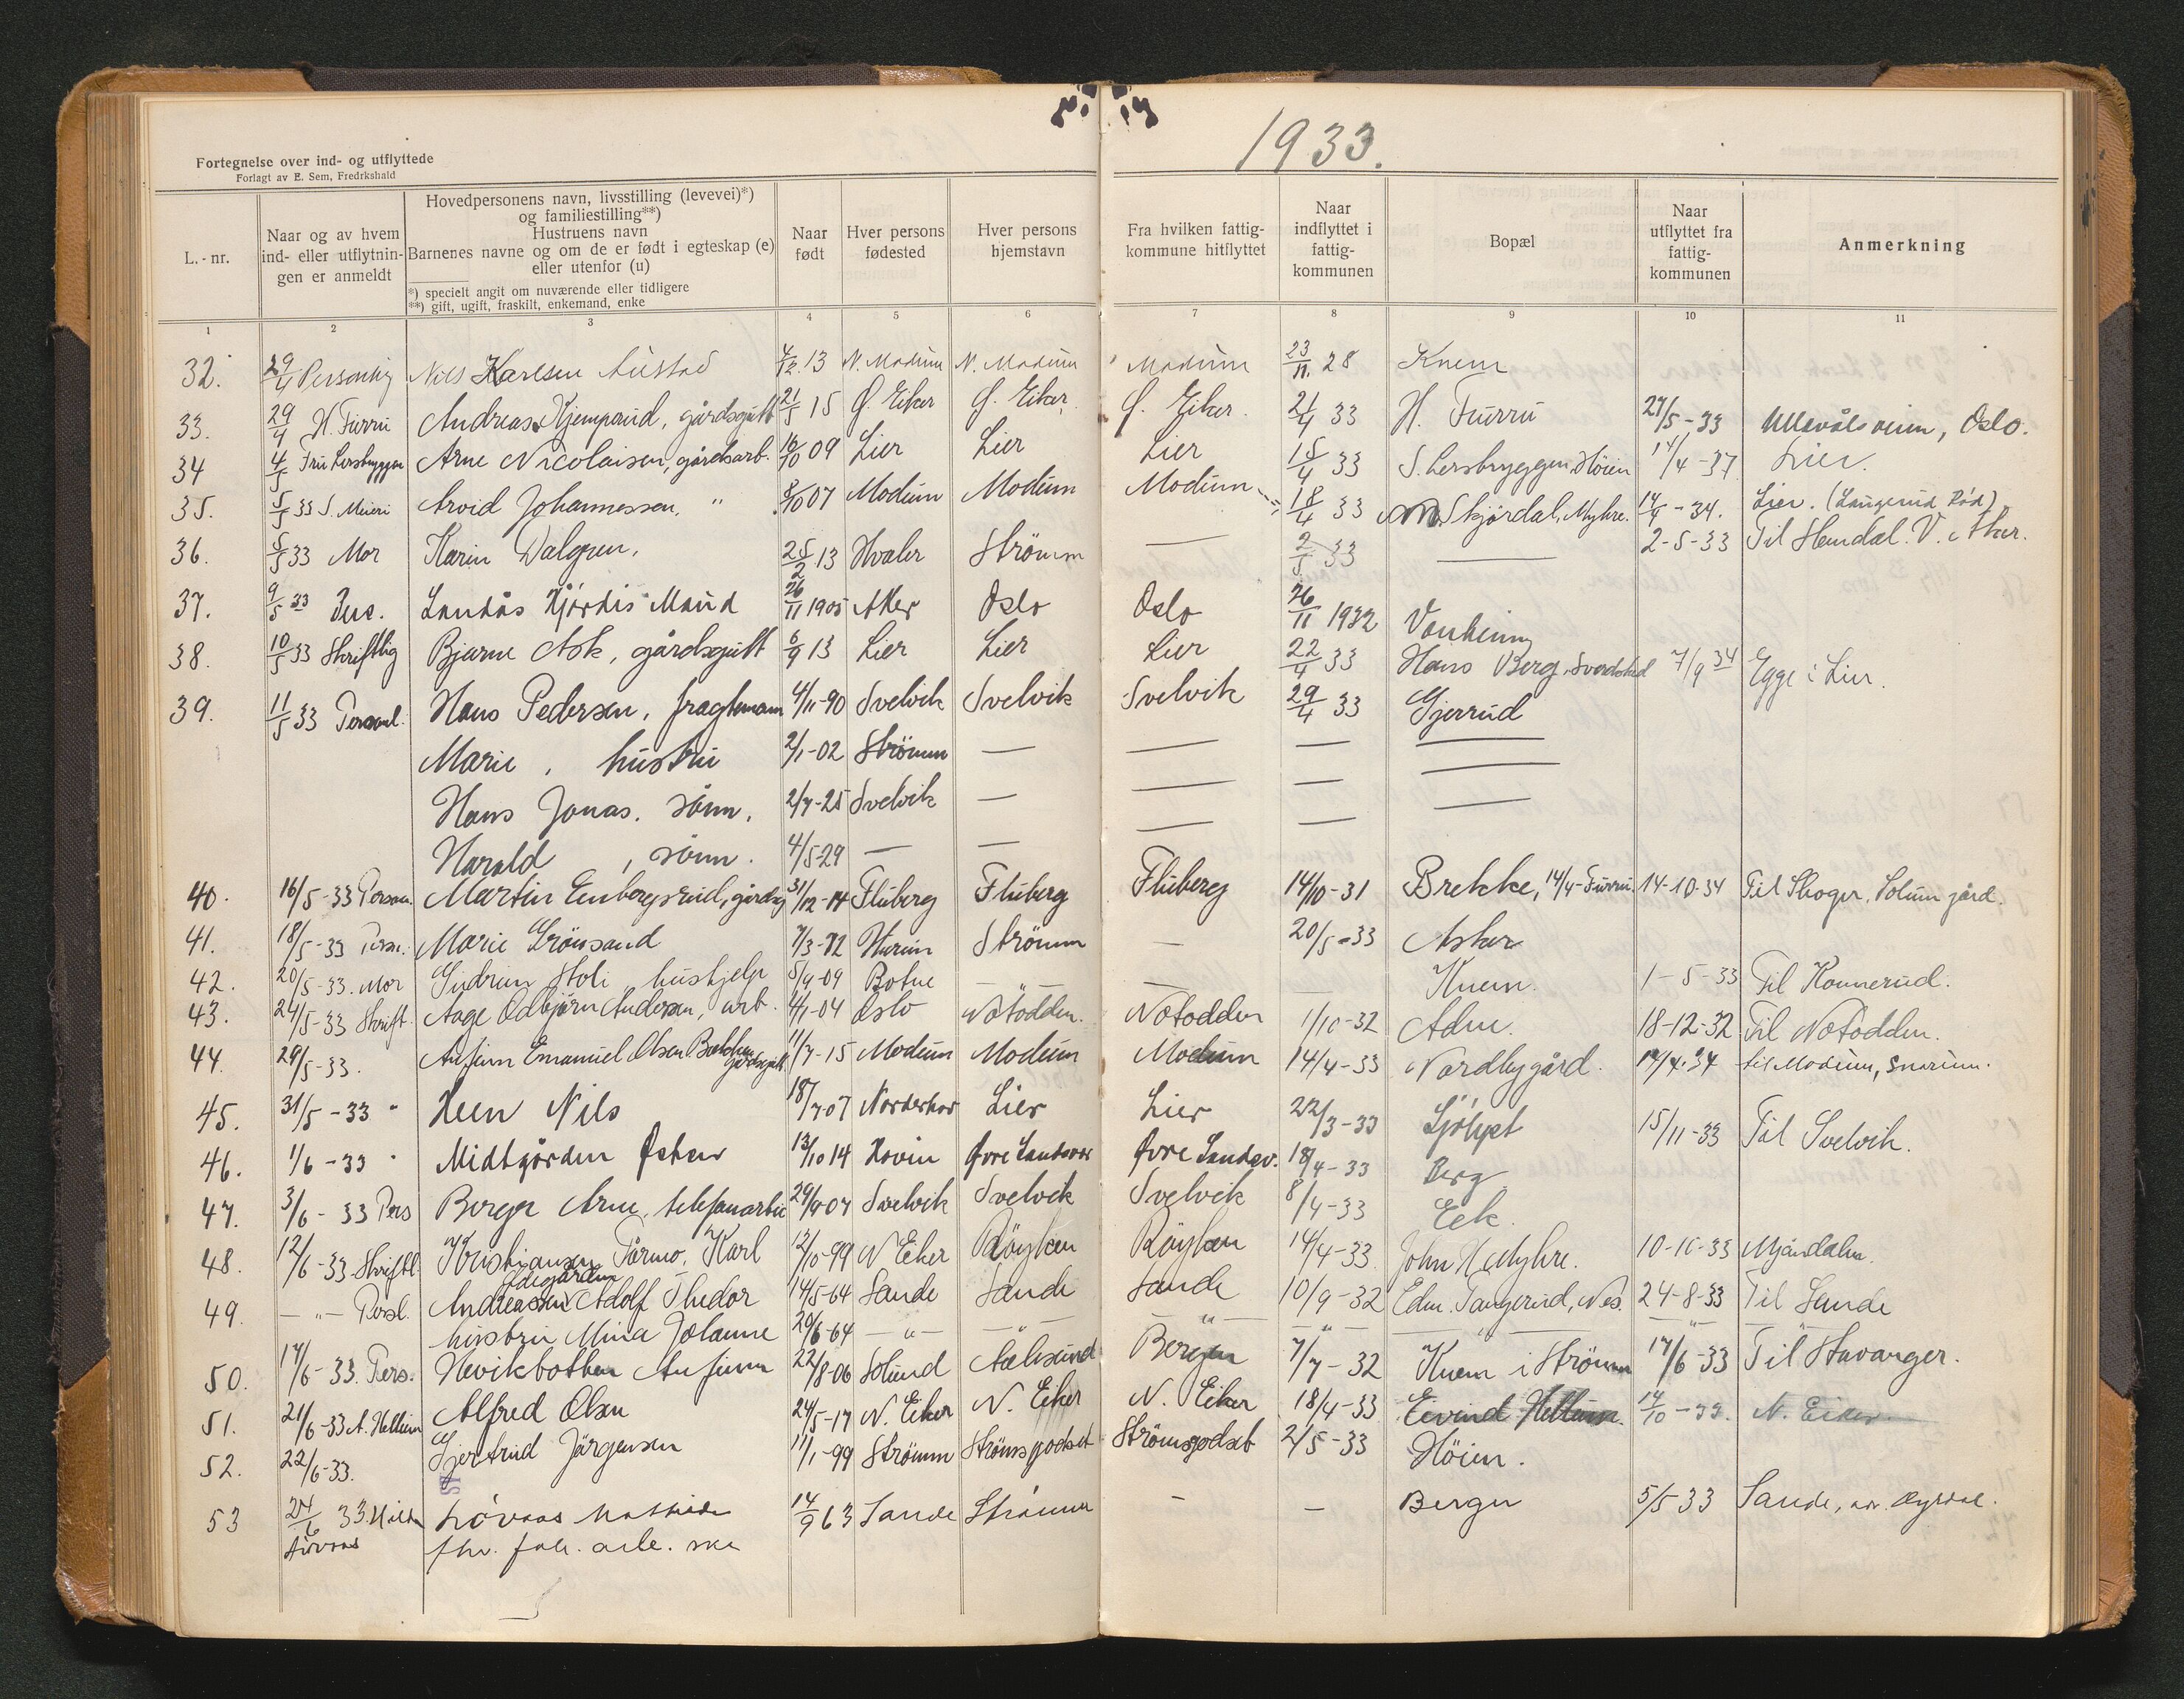 Fortegnelse over ind- og utflyttede
Forlagt av E. Sem, Fredrkshald
1933.
L.-nr.
Naar og av hvem ind- eller utflytningen er anmeldt
Hovedpersonens navn, livsstilling (levevei)*) og familiestilling**)
Hustruens navn
Barnenes navne og om de er født i egteskap (e) eller utenfor (u)
*) specielt angit om nuværende eller tidligere
**) gift, ugift, fraskilt, enkemand, enke
Naar født
Hver persons fødested
Hver persons hjemstavn
Fra hvilken fattigkommune hitflyttet
Naar indflyttet i fattigkommunen
Bopæl
Naar utflyttet fra fattigkommunen
Anmerkning
1 2 3 4 5 6 7 8 9 10 11
32. 29/4 Personlig Nils Karlsen 4/12 13 N. Modum N. Modum Modum 23/11. 28 Knem
33. 29/4 H. Furru Andreas Kjemperud, gårdsgutt 21/5 15 Ø. Eiker Ø. Eiker Ø. Eiker. 21/4 33 H. Furru 27/5-33 Ullevålsveien, Oslo.
34 4/5 Fru Lersbryggen Arne Nicolaisen, gårdsarb. 16/10 09 Lier Lier Lier 15/4 33 S. Lersbryggen, Höien 14/4-37 Lier.
35. 5/5 33 S. Meieri Arvid Johannessen, " 8/10 07 Modum Modum Modum 18/4 33 Skjördal, Myhre. 14/4-34. Lier.
36. 5/5 33 Mor Karin Dalgren, 25/2 13 Hvaler Strömm — 2/5 33 — 2-5-33 Til Hemdal. V. Aker.
37. 9/5 33 Landås Hjördis Maud 26/11 1905 Aker Oslo Oslo 26/11 1932
38. 10/5 33 Skriftlig Bjarne Ask, gårdsgutt 6/9 13 Lier Lier Lier 22/4 33 Hans Berg, Sverdstad 7/9 34 Egge i Lier.
39. 11/5 33 Personl. Hans Pedersen, fragtemann 4/11-90 Svelvik Svelvik Svelvik 29/4 33 Gjerrud
Marie, hustru 2/1-02 Strömm — — — —
Hans Jonas. sönn. 2/7-25 Svelvik — — — —
Harald, sönn. 4/5-29 — — — — —
40. 16/5-33 Person. Martin Enbergsrud, 31/12-14 Fluberg Fluberg Fluberg 14/10-31 Brekke, 14/4-Furru. 14-10-34 Til Skoger, Solum gård.
41. 18/5-33 Pers. Marie Grönsand 7/3-72 Hurum Strömm — 20/5-33 Asker
42. 20/5-33. Mor Gudrun Stoli hushjelp 5/9-09 Botne — — — Knem. 1-5-33 Til Konnerud.
43. 24/5-33 Skrift. Aage Odbjörn Andersen, arb. 4/1-04 Oslo Notodden. Notodden 1/10-32 18-12-32 Til Notodden.
44. 29/5-33. Anfinn Emanuel Olsen gårdsgutt 11/7-15 Modum Modum Modum 14/4-33 Nordbygård. 14/4-34 til Modum, Snarum.
45. 31/5-33 " Heen Nils 18/7-07 Norderhov Lier Lier 22/3-33 15/11-33 Til Svelvik.
46. 1/6-33 " Midtgården Østen 13/10 14 Hovin Øvre Sandsvær Øvre Sandsv. 18/4-33 Berg
47. 3/6-33 Pers Berger Arne, telefonarbei 29/9-07 Svelvik Svelvik Svelvik 8/4-33 Eek.
48. 12/6-33 Skriftl. Kristiansen Parmo, Karl 12/10-99 N Eiker Röyken Röyken 14/4-33. John H Myhre. 10-10-33 Mjöndalen.
49. —"— Persl. Andreassen Adolf Thedor 14/5-64 Sande Sande Sande 10/9-32 Edm. Tangerud, Nes. 24-8-33 Til Sande
hustru Mina Jolanne 20/6-64 —"— —"— —"— —"— —"— —"—
50. 17/6-33. Pers. Hevikbotten Anfinn 22/8-06 Solund Aalesund Bergen 7/7-32 Knem i Strömm 17/6-33 Til Stavanger.
51. 21/6-33 A. Hellum Alfred Olsen 24/5-17 N. Eiker N. Eiker N. Eiker 18/4-33 Eivind Hellum. 14/10-33. N. Eiker
52. 22/6-33. Gjertrud Jörgensen 11/1-99 Strömm Strömsgodset Strömsgodset 2/5-33 Höien.
53 24/6 33. Lövaas Mathilde 14/9 63 Sande Strömm — — Berger 5/5 33 Sande,
Lövaas